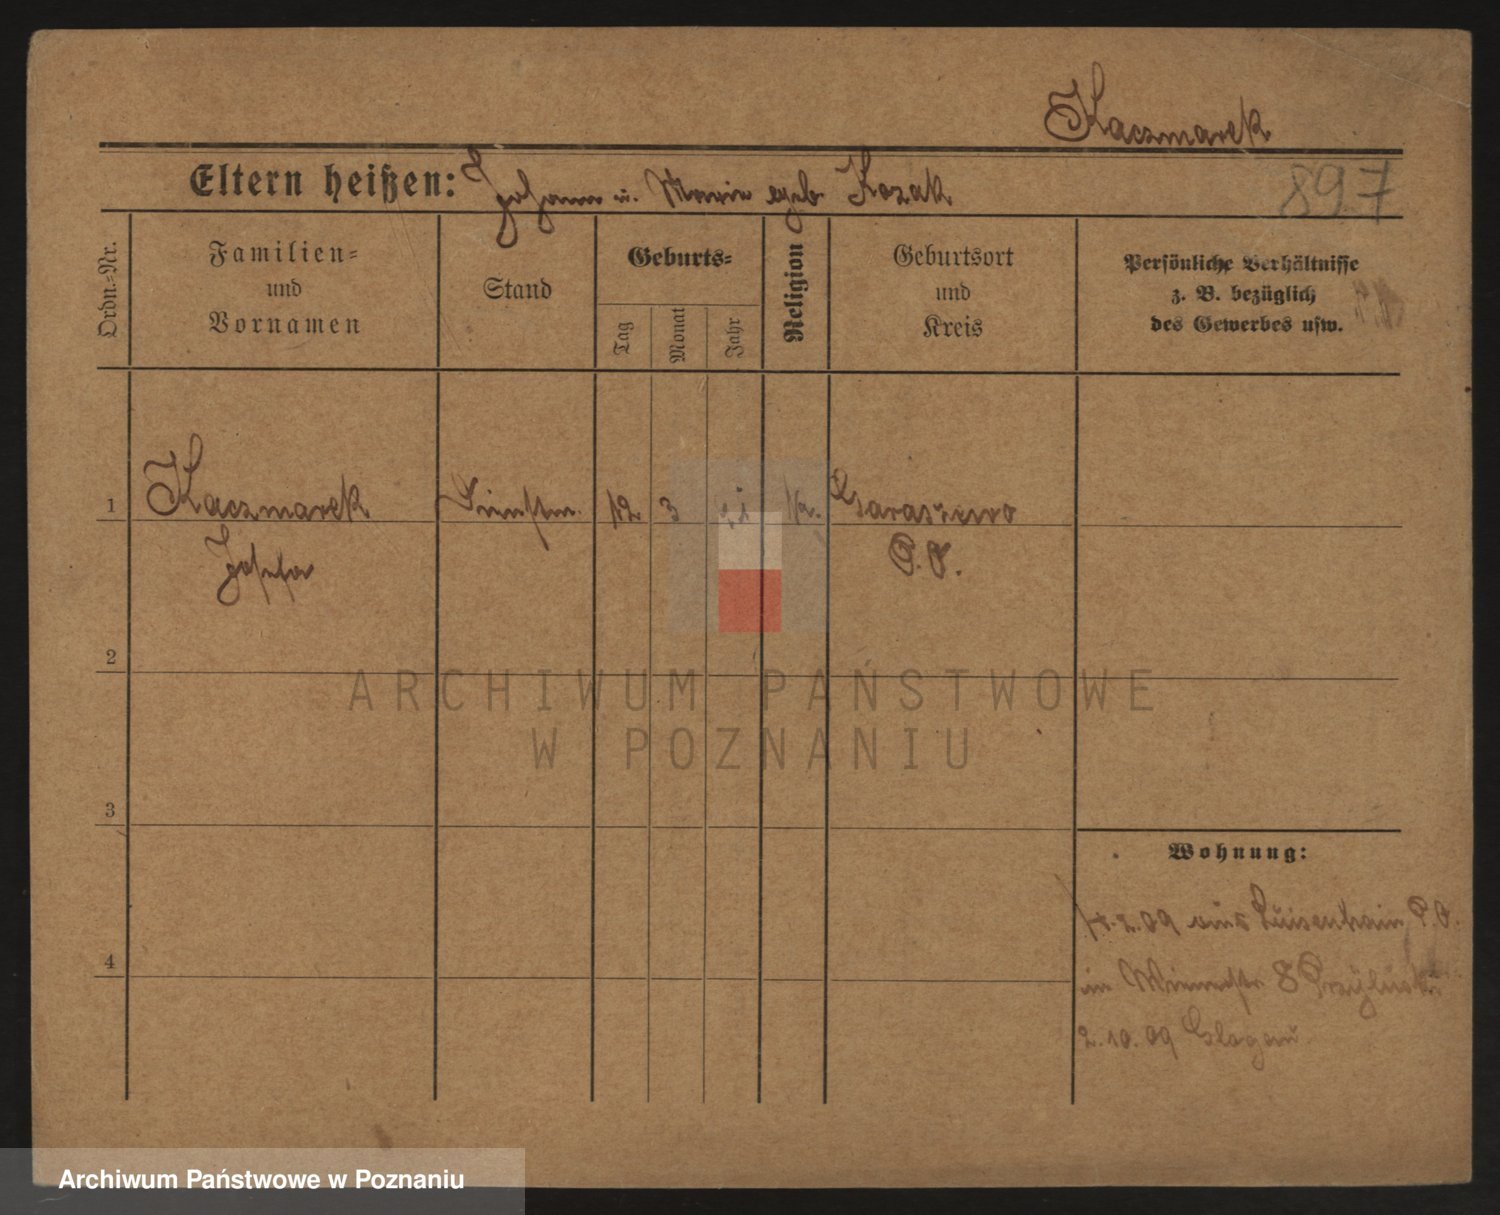 Kaczmarek
Eltern heißen: Johann u. Marie geb. Kozak
897
Ordn.-Nr.
Familien-
und
Vornamen
Stand
Geburts-
Tag
Monat
Jahr
Religion
Geburtsort
und
Kreis
Persönliche Verhältnisse
z. B. bezüglich
des Gewerbes usw.
1
Kaczmarek
Josefa
12
3
Garaszewo
P. O.
2
3
4
Wohnung:
2.09 aus Luisenhain P. O.
in 8
2.10.09 Glogau
ARCHIWUM PAŃSTWOWE
W POZNANIU
Archiwum Państwowe w Poznaniu